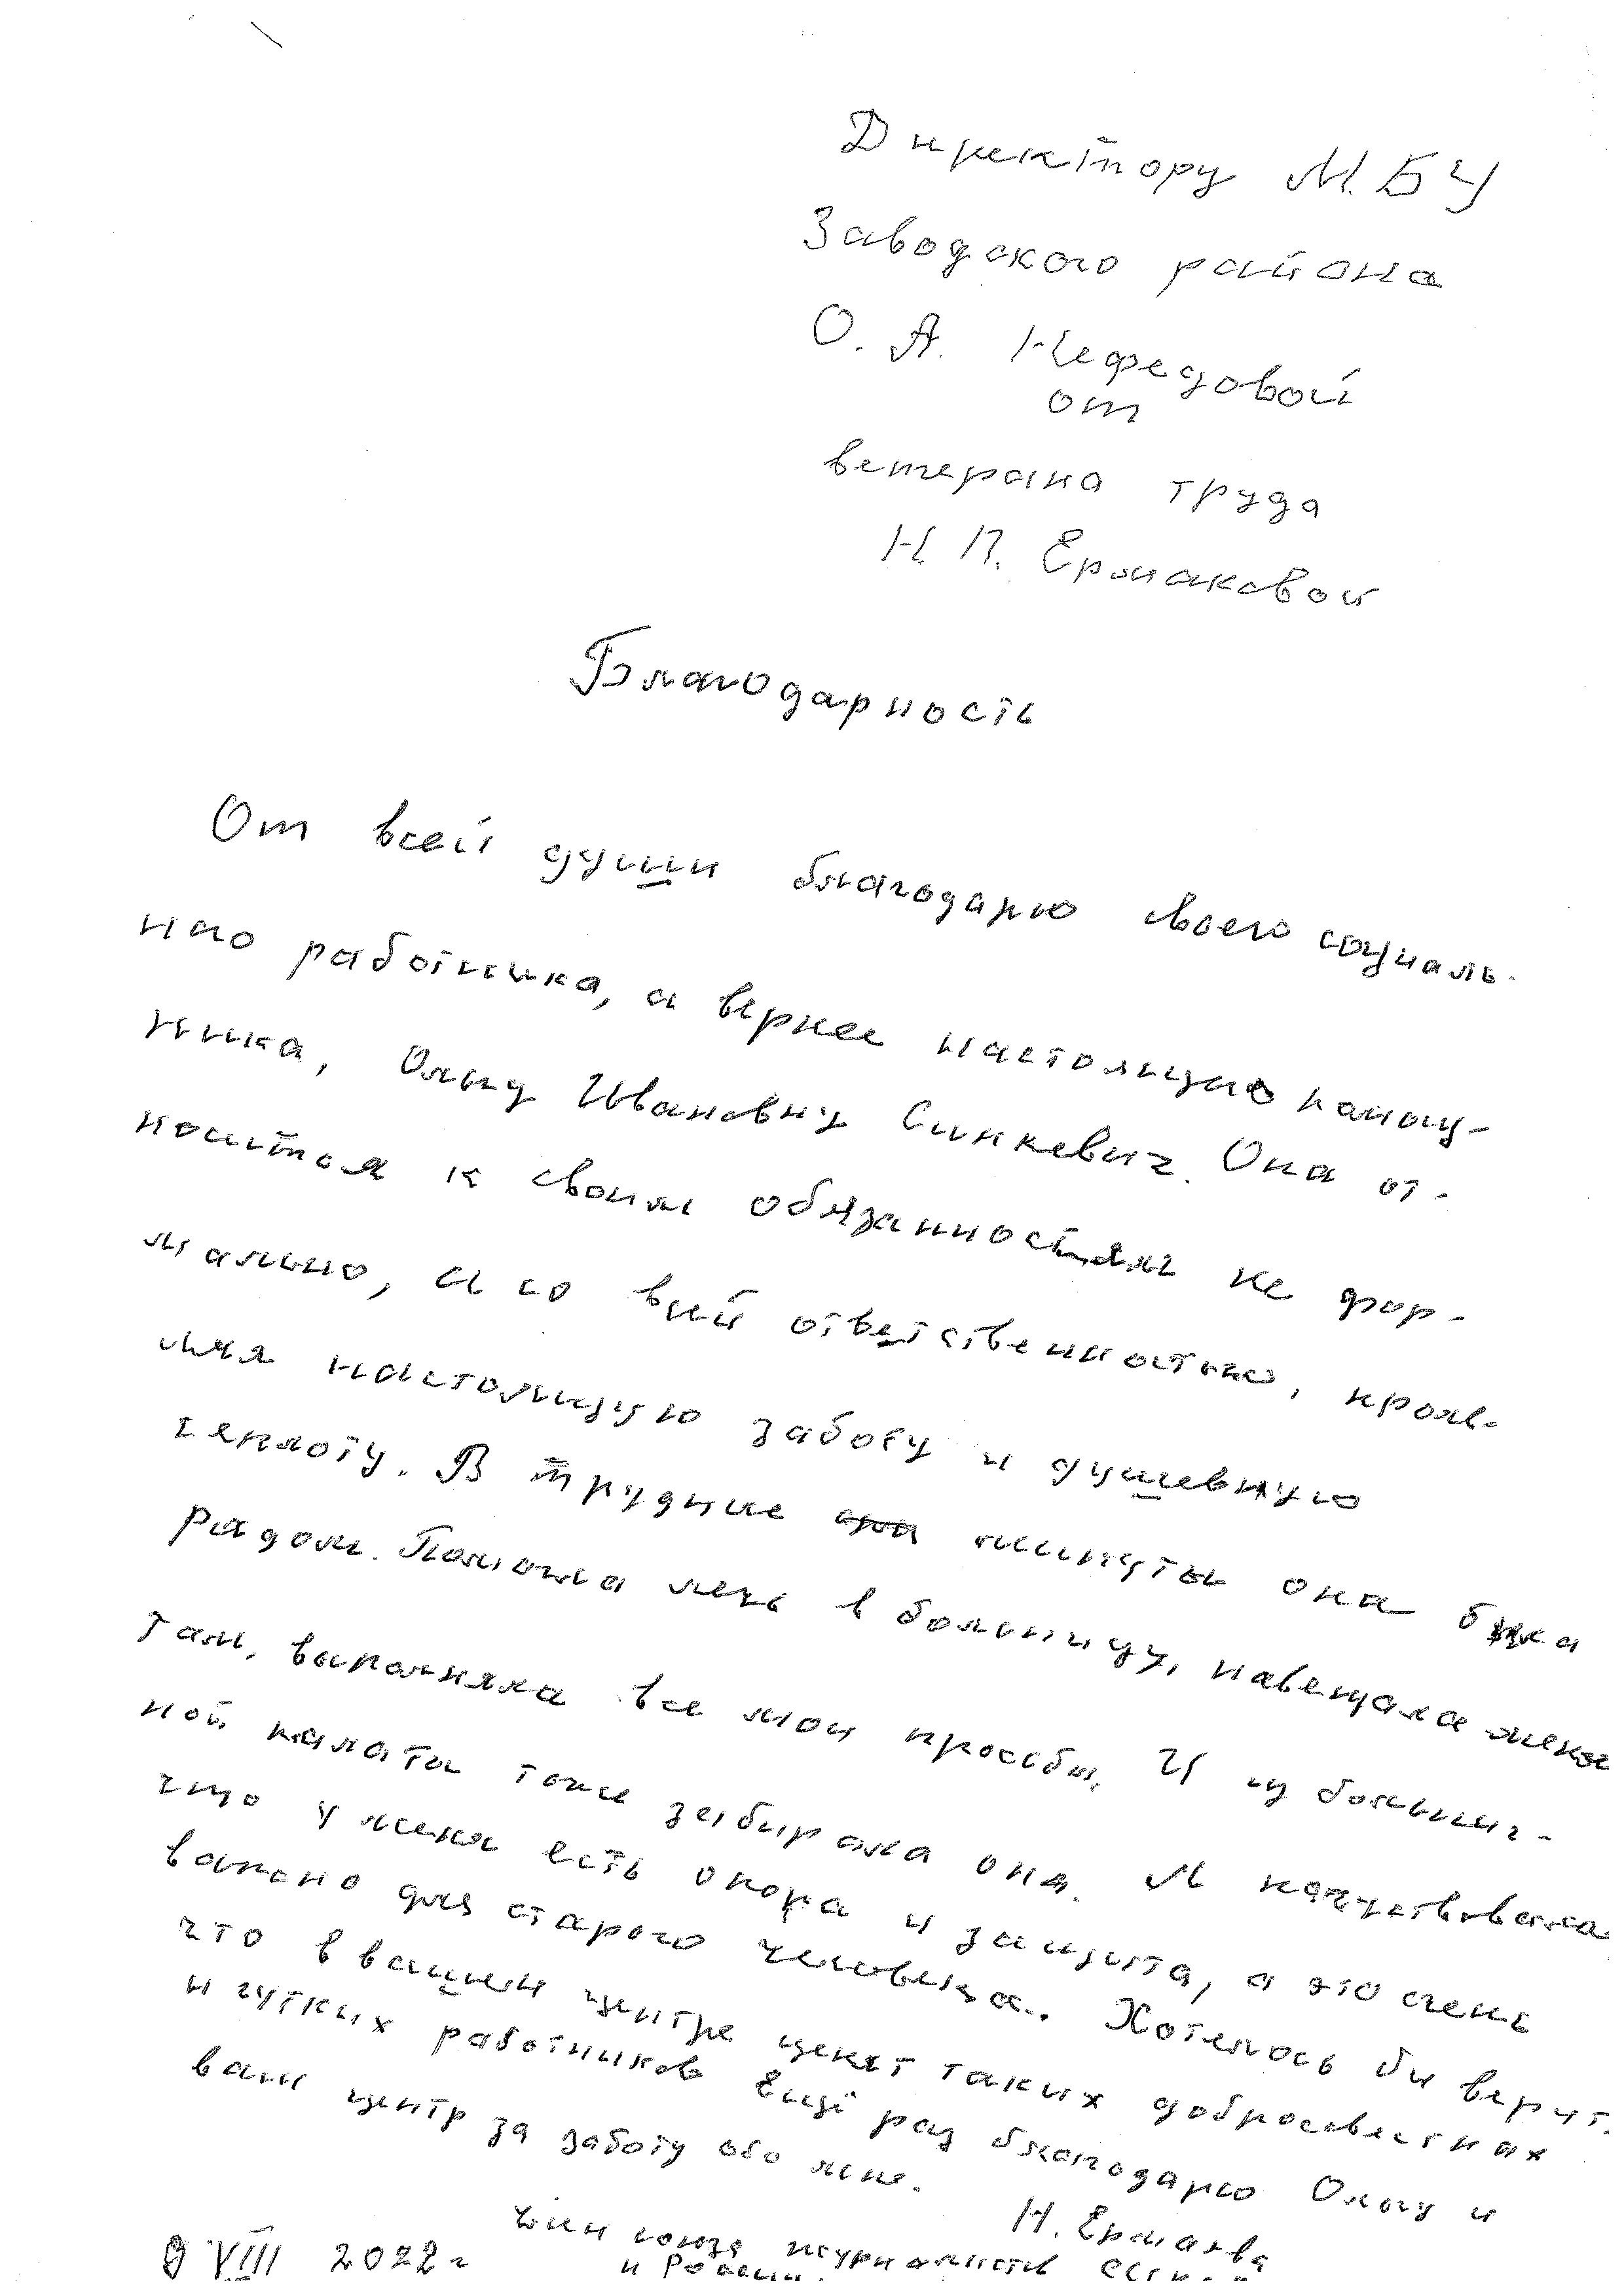 Директору М.БУ
Заводского района
О. А. Нефедовой
от
ветерана труда
Н. П. Ермаковой
Благодарность
От всей души благодарю своего социаль-
ного работника, а вернее настоящую помощ-
ника, Ольгу Ивановну Синкевич. Она от-
носится к своим обязанностям не фор-
мально, а со всей ответственностью, прояв-
ляя настоящую заботу и душевную
теплоту. В трудные минуты она была
рядом. Помогла лечь в больницу, навещала меня
там, выполняла все мои просьбы. И из больнич-
ной палаты тоже забирала она. Я почувствовала,
что у меня есть опора и защита, а это очень
важно для старого человека. Хотелось бы верить,
что в вашем центре ценят таких добросовестных
и чутких работников. Ещё раз благодарю Ольгу и
ваш центр за заботу обо мне.
Н. Ермакова
9 VIII 2022 г
член союза журналистов
и России